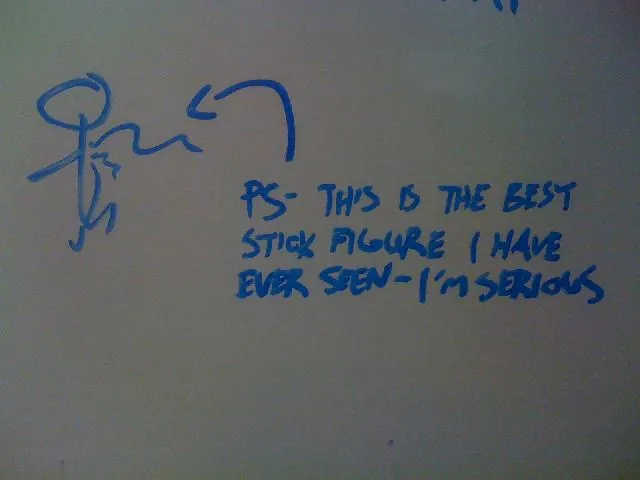 PS- THIS IS THE BEST
STICK FIGURE I HAVE
EVER SEEN - I'M SERIOUS